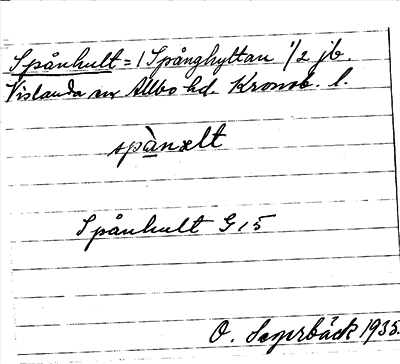 Spånhult = 1 Spånghyttan 1/2 jb.
Vislanda sn Allbo hd. Kronob. l.
spànælt
Spånhult G 15
O. Segerbäck 1935.